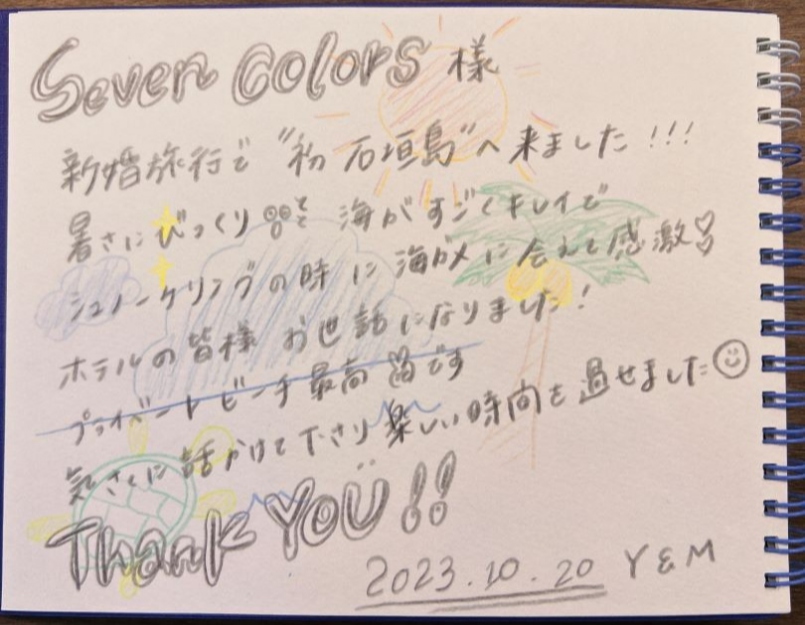 Seven Colors 様
新婚旅行で "初 石垣島"へ 来ました!!!
暑さにびっくり 海がすごくキレイで
シュノーケリングの時に 海ガメに会えて感激♡
ホテルの皆様 お世話になりました!
プライベートビーチ最高 です
気さくに話かけて下さり 楽しい時間を過せました☺
Thank YOU!!
2023.10.20 Y&M